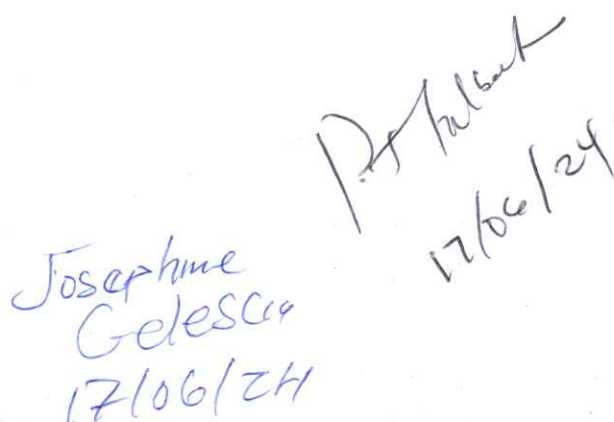 P.J Talbot
17/06/24
Josephine
Gelescia
17/06/24